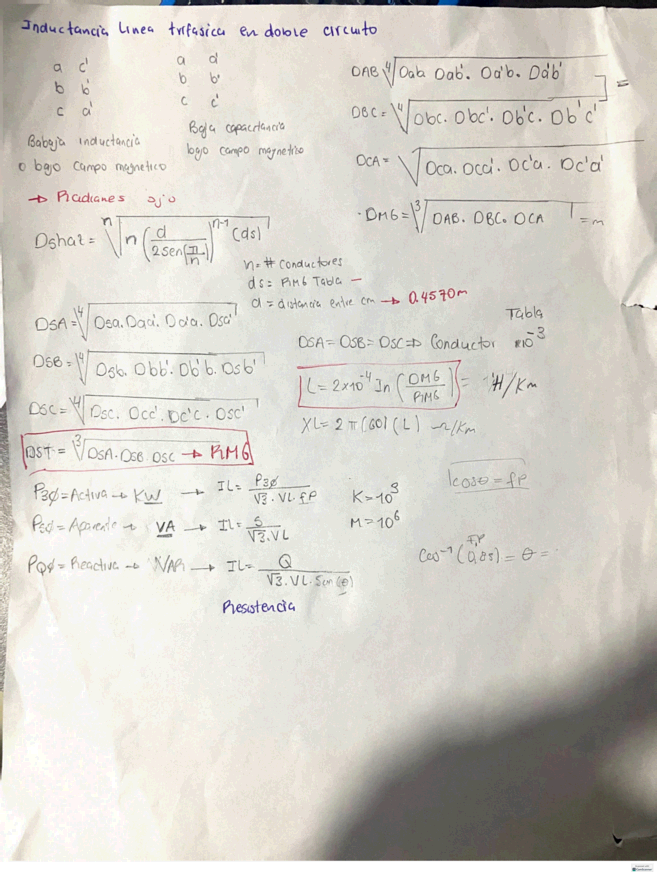 Inductancia Linea trifasica en doble circuito
a c' a a'
b b' b b'
c a' c c'
Babaja inductancia
o bajo campo magnetico
Baja capacitancia
bajo campo magnetico
DAB ⁴√Dab. Dab'. Da'b. Da'b' =
DBC = ⁴√Dbc. Dbc'. Db'c. Db'c'
DCA = √Dca. Dca'. Dc'a. Dc'a'
DMG = ³√DAB. DBC. DCA = m
→ Radianes ojo
Dshaz = ⁿ√n (d / 2sen(π/n))ⁿ⁻¹ (ds)
n = # conductores
ds = RMG Tabla —
d = distancia entre cm → 0.4570m
DSA = ⁴√Dsa. Daa'. Da'a. Dsa'
DSB = ⁴√Dsb. Dbb'. Db'b. Dsb'
DSC = ⁴√Dsc. Dcc'. Dc'c. Dsc'
DST = ³√DSA. DSB DSC → RMG
Tabla
DSA = DSB = DSC => Conductor x10⁻³
L = 2x10⁻⁴ ln (DMG / RMG) = H/Km
XL = 2π(60)(L) Ω/Km
P3ϕ = Activa → KW → IL = P3ϕ / √3. VL. fP
K = 10³
PSϕ = Aparente → VA → IL = S / √3. VL
M = 10⁶
PQϕ = Reactiva → VAR → IL = Q / √3. VL. Sen(θ)
cosθ = fP
F.P
Cos⁻¹(0,85) = θ =
Resistencia